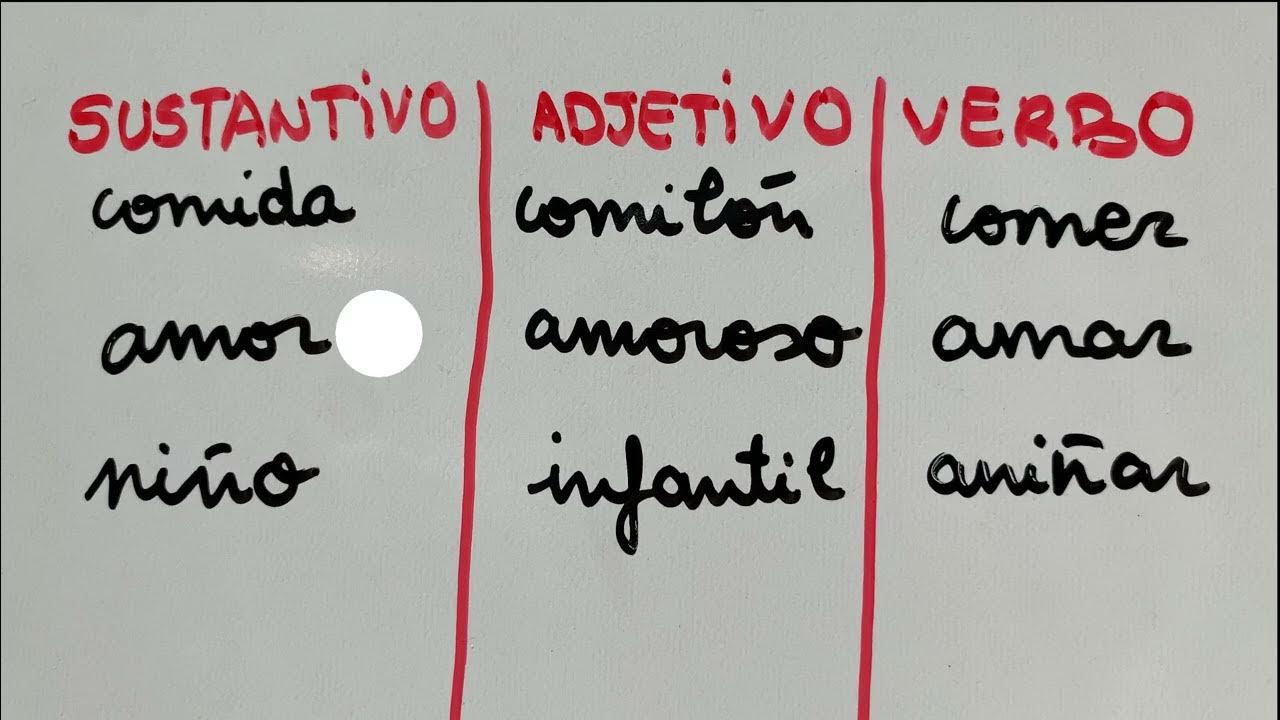 SUSTANTIVO ADJETIVO VERBO
comida comilón comer
amor amoroso amar
niño infantil aniñar